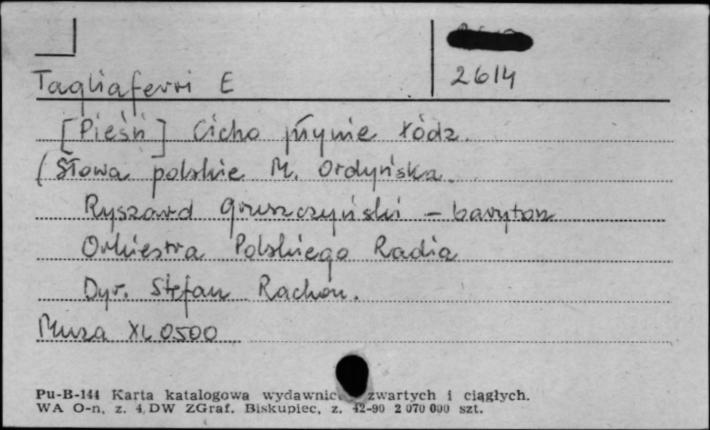 2614
Tagliaferri E
[Pieśń] Cicho płynie łódz.
(Słowa polskie M. Ordyńska
Ryszard Gruszczyński – baryton
Orkiestra Polskiego Radia
Dyr. Stefan Rachoń.
Muza XL 0500
Pu-B-144 Karta katalogowa wydawnic zwartych i ciągłych.
WA O-n, z. 4, DW ZGraf. Biskupiec, z. 42-90 2 070 000 szt.